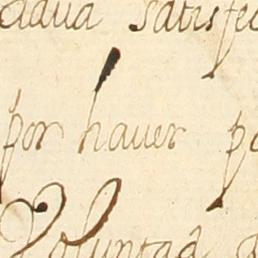 adua satisfe
por haver p
Voluntad